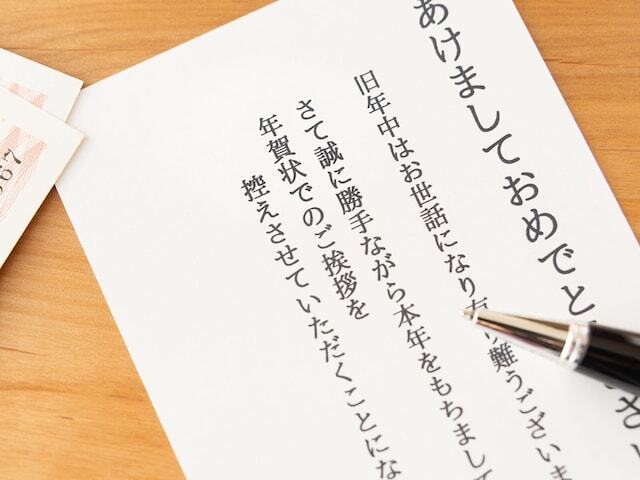 あけましておめでと
旧年中はお世話になり有り難うございま
さて誠に勝手ながら本年をもちまして
年賀状でのご挨拶を
控えさせていただくことにな